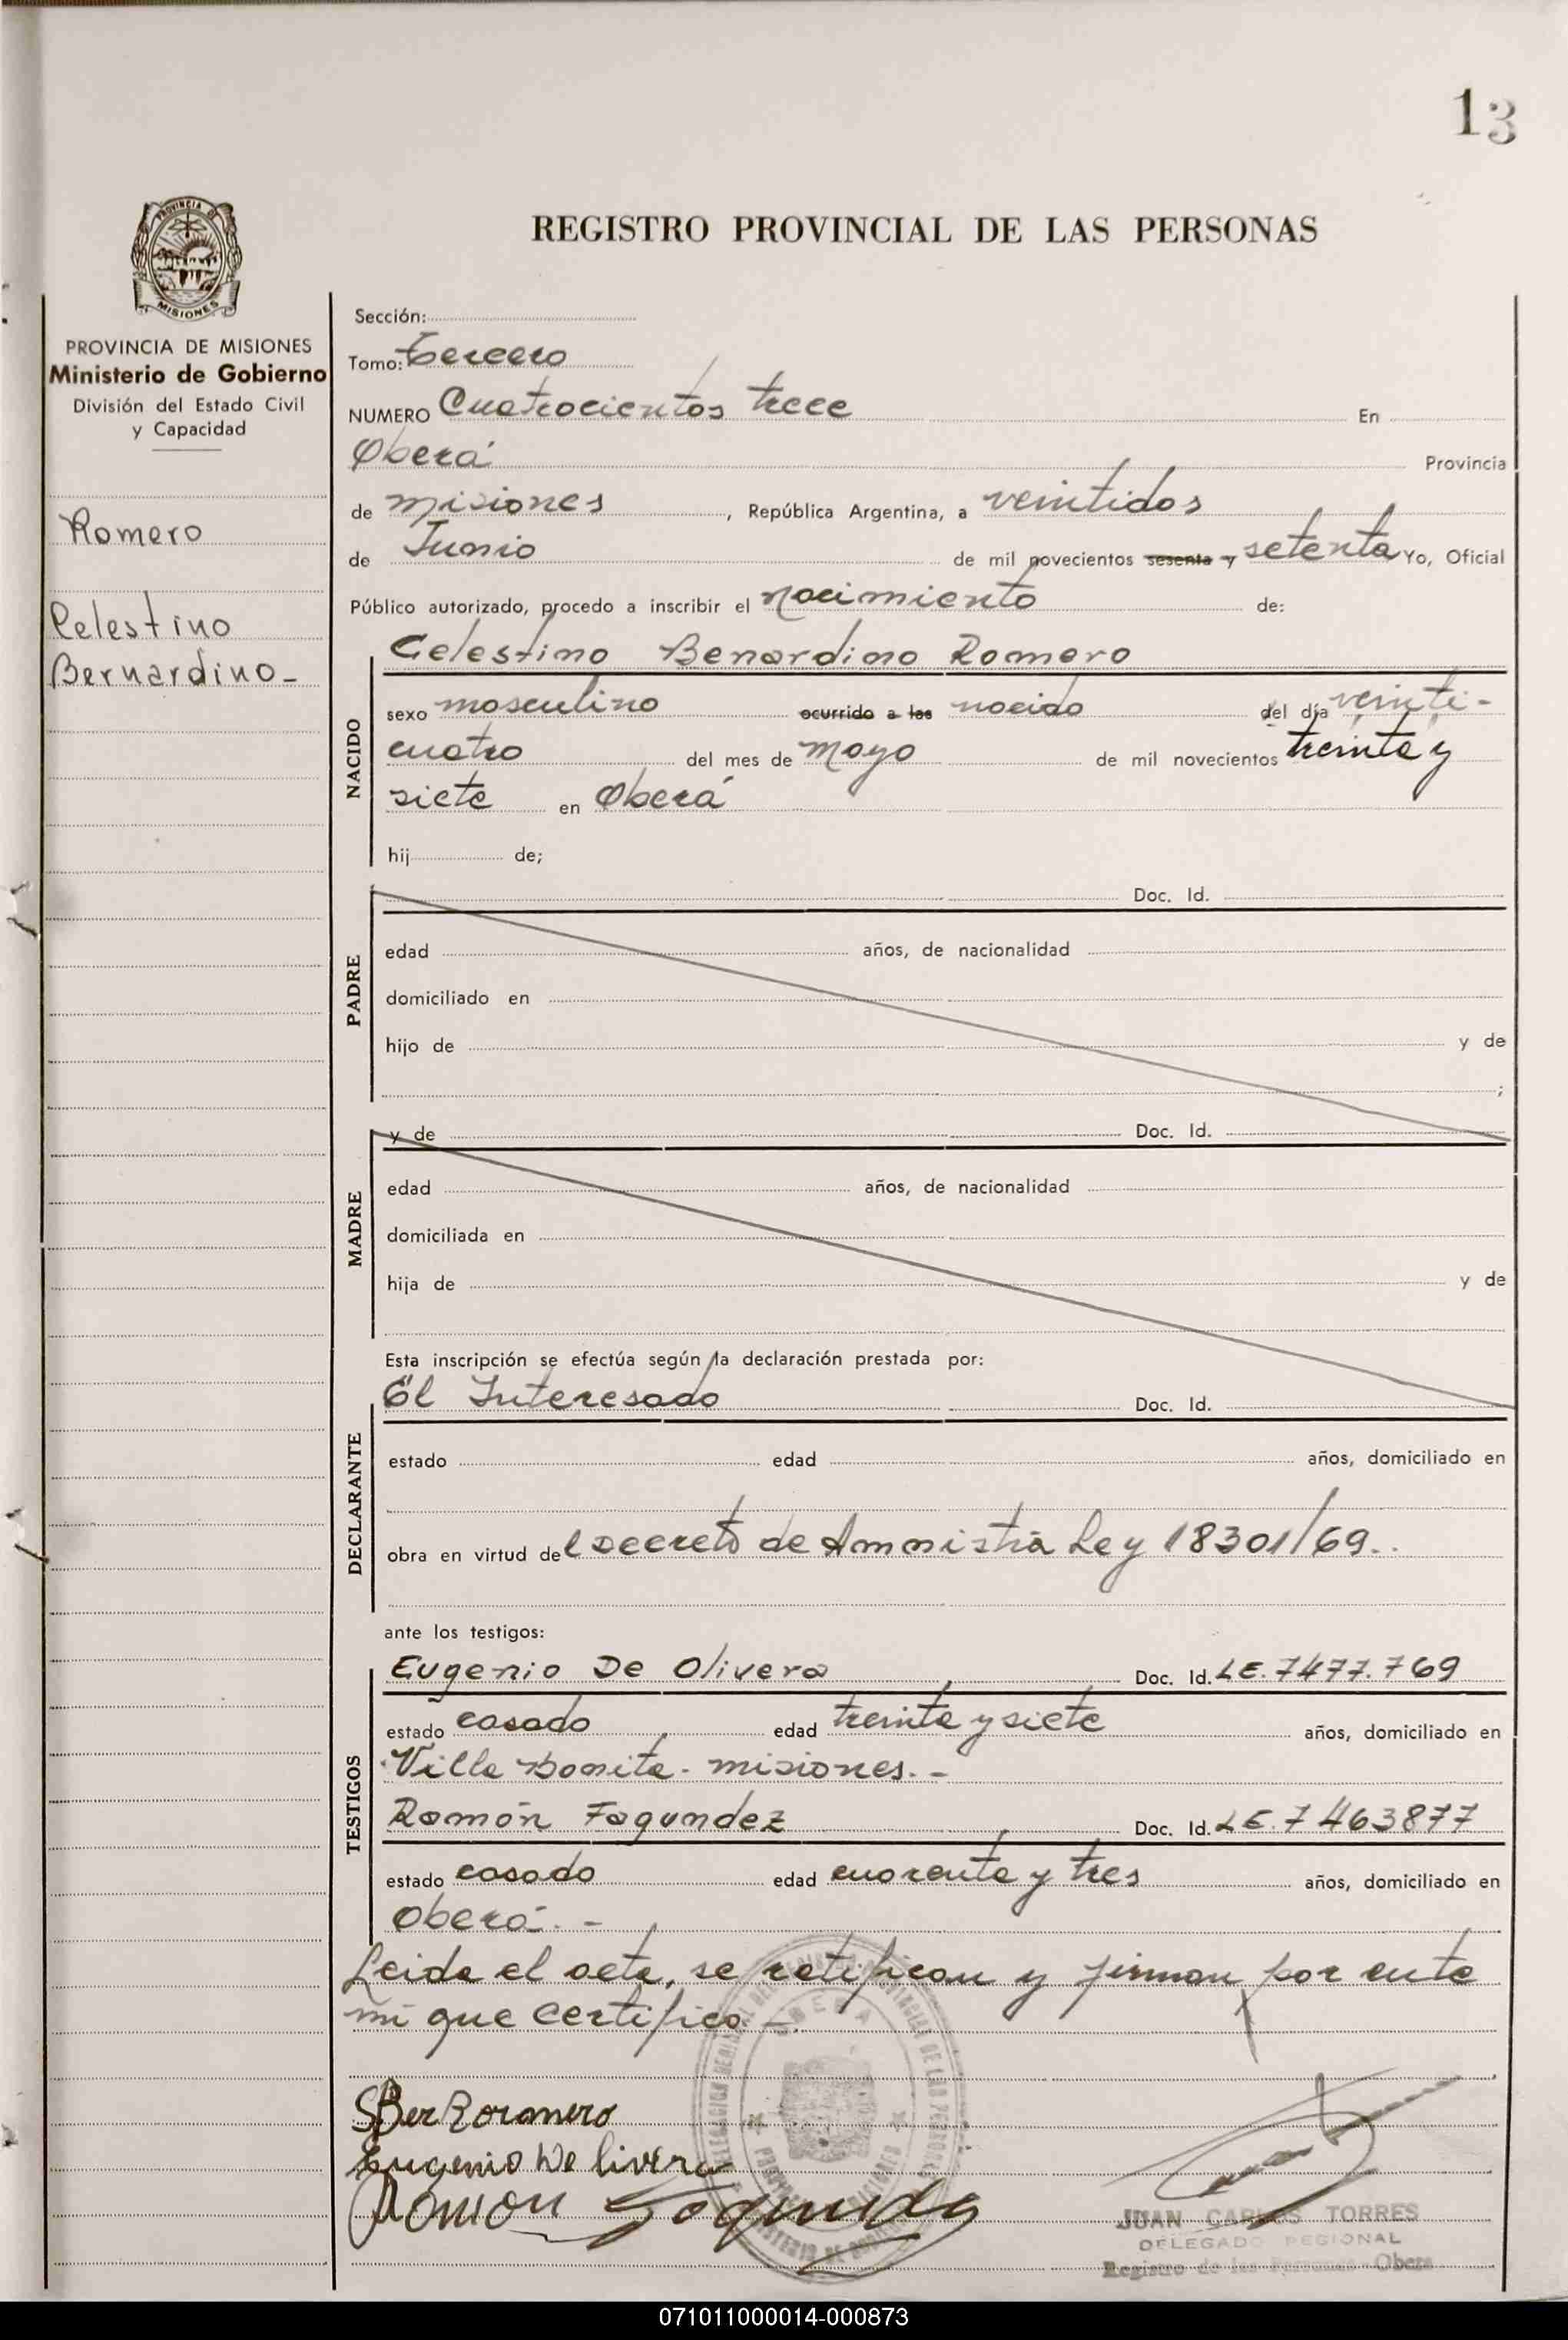 13
PROVINCIA DE
MISIONES
REGISTRO PROVINCIAL DE LAS PERSONAS
PROVINCIA DE MISIONES
Ministerio de Gobierno
División del Estado Civil
y Capacidad
Romero
Celestino
Bernardino-
Sección:
Tomo: Tercero
NUMERO Cuatrocientos trece En
Oberá Provincia
de misiones, República Argentina, a veintidos
de Junio de mil novecientos sesenta y setenta Yo, Oficial
Público autorizado, procedo a inscribir el nacimiento de:
Celestino Benardino Romero
NACIDO
sexo masculino ocurrido a las nacido del día veinti-
cuatro del mes de mayo de mil novecientos treinta y
siete en Oberá
hij de;
PADRE
Doc. Id.
edad años, de nacionalidad
domiciliado en
hijo de y de
;
MADRE
y de Doc. Id.
edad años, de nacionalidad
domiciliada en
hija de y de
Esta inscripción se efectúa según la declaración prestada por:
DECLARANTE
El Interesado Doc. Id.
estado edad años, domiciliado en
obra en virtud del Decreto de Amnistía Ley 18301/69..
ante los testigos:
TESTIGOS
Eugenio De Olivera Doc. Id. LE. 7477.769
estado casado edad treinta y siete años, domiciliado en
Villa Bonita - misiones. -
Ramón Fagundez Doc. Id. LE. 7463877
estado casado edad cuarenta y tres años, domiciliado en
Oberá. -
Leida el acta, se ratifican y firman por ante
mi que certifico. -
OBERA
Eugenio De livera
Ramon
JUAN CARLOS TORRES
DELEGADO REGIONAL
Registro de las Personas - Obera
071011000014-000873